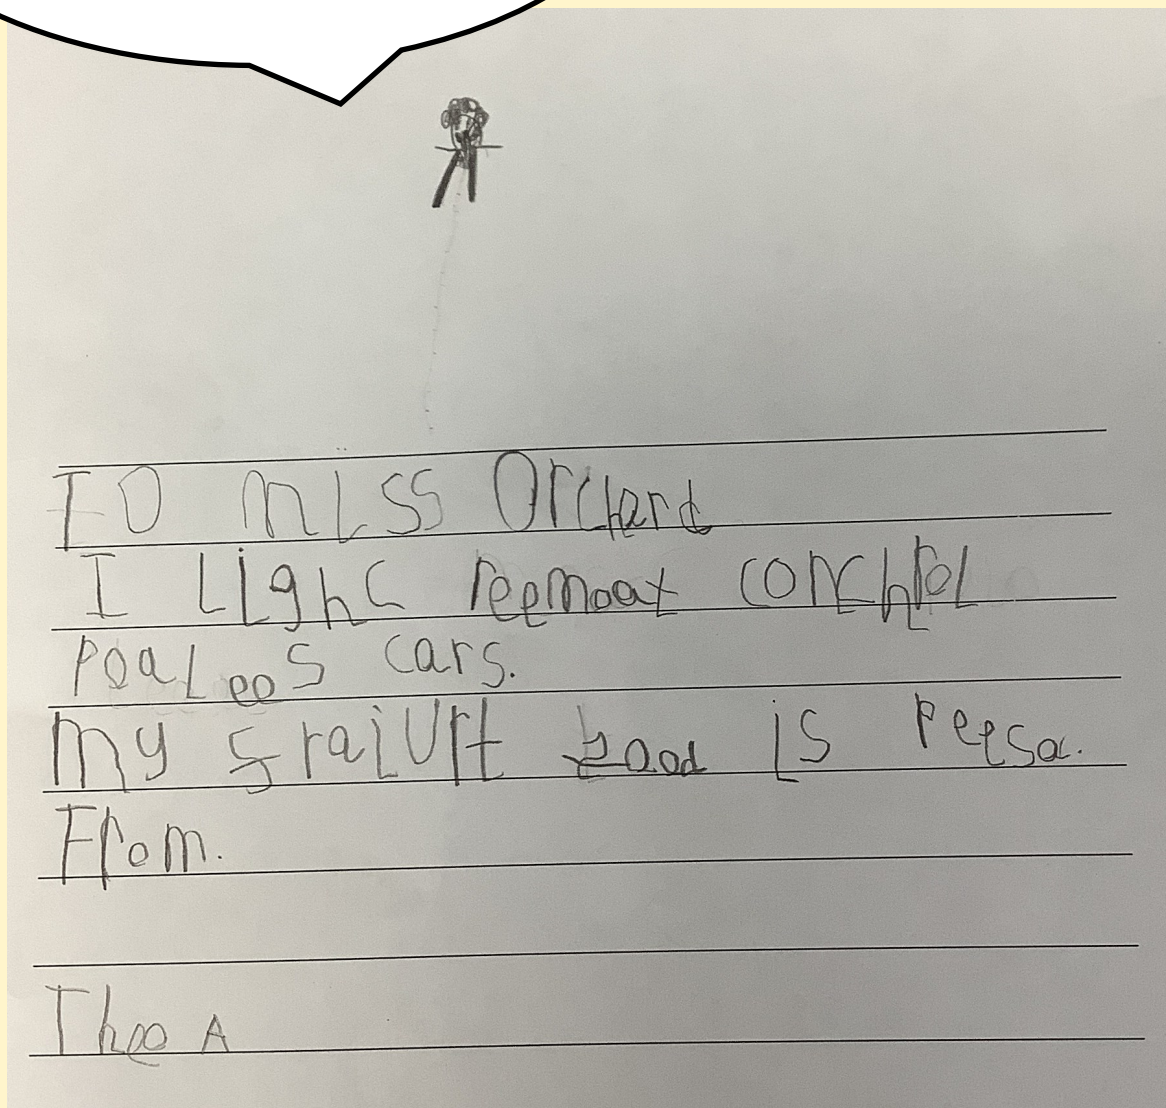 TO miss Orchard
I Lighc reemoat conchrol
poaLees cars.
my fraiurt food is peesa.
From.
Theo A